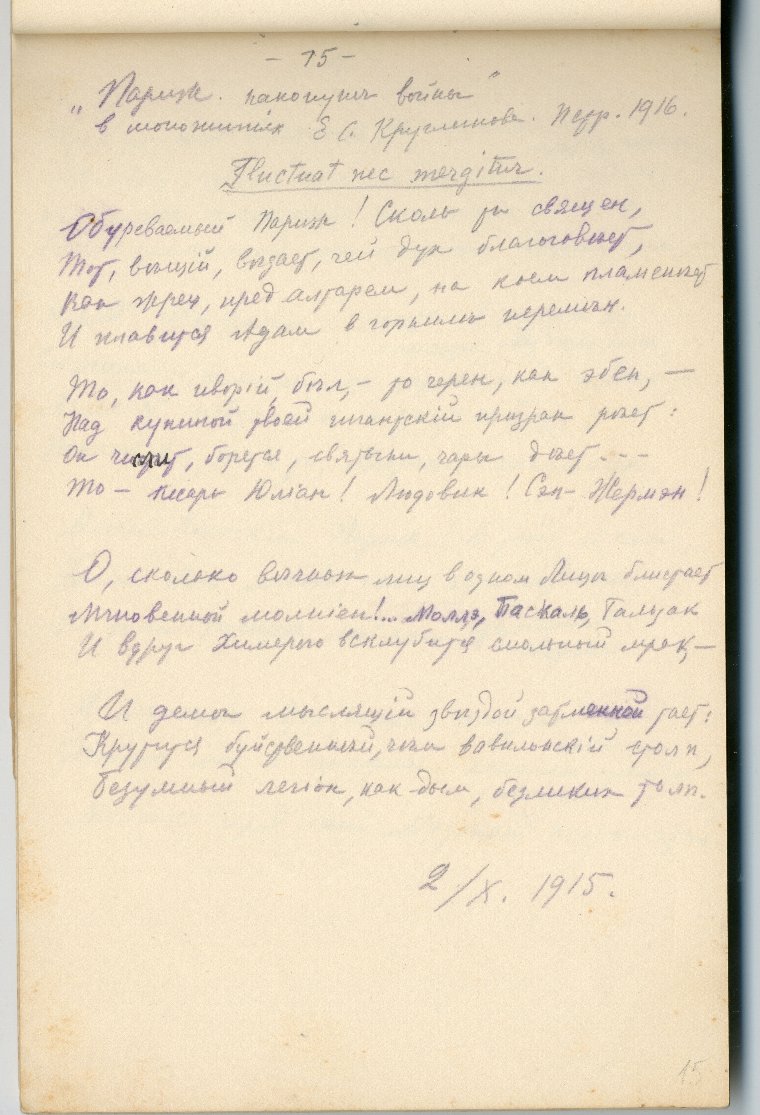 - 15 -
„Париж наканунѣ войны"
в монотипіях Е. С. Кругликовой. Петр. 1916.
Fluctuat nec mergitur.
Обуреваемый Париж! Сколь ты священ,
Тот, вѣщій, видает, чей дух благоговѣет,
Как жрец, пред алтарем, на коем пламенѣет
И плавится Адам в горнилѣ перемѣн.
То, как иворій, бѣл, – то черен, как эбен, –
Над купиной твоей гигантскій призрак рѣет:
Он чи борется, святыни, чары дѣет - - -
То – кесарь Юліан! Людовик! Сэн-Жермэн!
О, сколько вѣчных лиц в одном Лицѣ блистает
Мгновенной молніей!.. Моллэ, Паскаль, Бальзак
И вдруг Химерою всклубится смольный мрак, –
И демон мыслящій звѣздой затменной тает:
Крутится буйственный, чѣм вавилонскій столп,
Безумный легіон, как дым, безликих толп.
2/X. 1915.
15